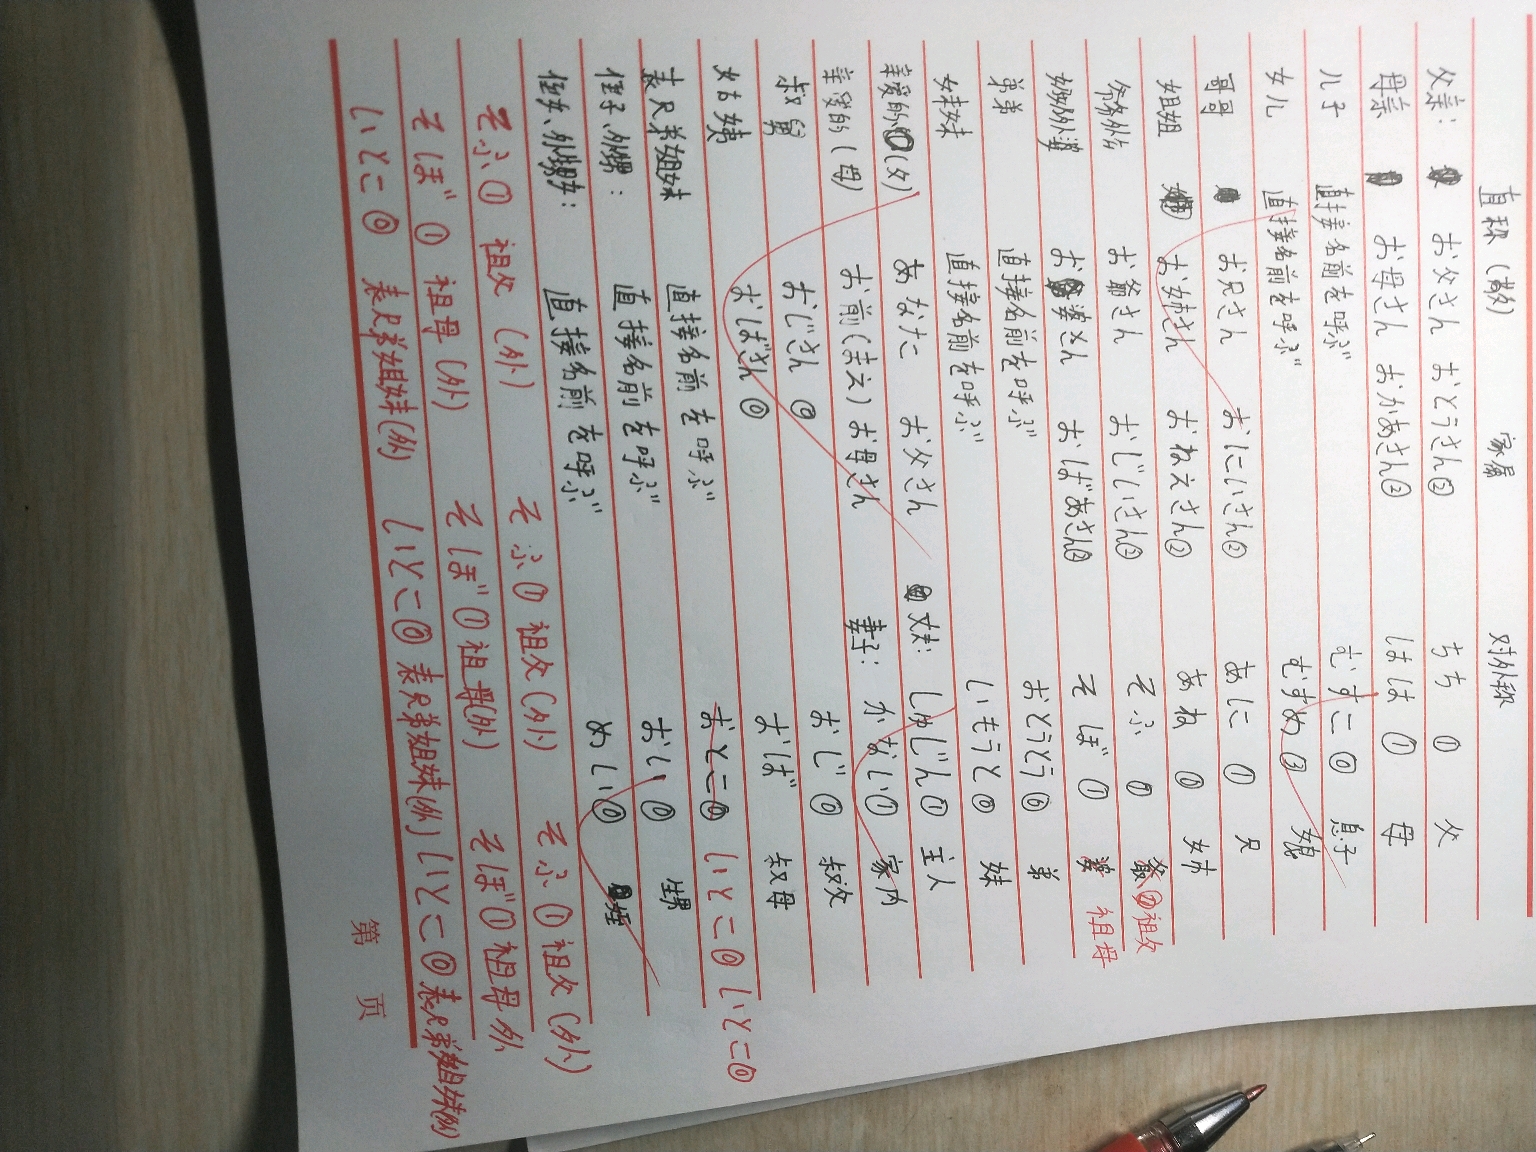 直称(敬) 家属 对外称
父亲: お父さん おとうさん② ちち ① 父
母亲 お母さん おかあさん② はは ① 母
儿子 直接名前を呼ぶ むすこ ⓪ 息子
女儿 直接名前を呼ぶ むすめ ③ 娘
哥哥 お兄さん おにいさん② あに ① 兄
姐姐 お姉さん おねえさん② あね ⓪ 姉
爷爷外公 お爺さん おじいさん② そふ ① 祖父
奶奶外婆 お婆さん おばあさん② そぼ ① 婆 祖母
弟弟 直接名前を呼ぶ おとうとう⑥ 弟
妹妹 直接名前を呼ぶ いもうと⓪ 妹
亲爱的(父) あなた お父さん 丈夫: しゅじん① 主人
亲爱的(母) お前(まえ) お母さん 妻子: かない① 家内
叔舅 おじさん ⓪ おじ⓪ 叔父
姑姨 おばさん ⓪ おば 叔母
表兄弟姐妹 直接名前を呼ぶ おとこ⓪ いとこ⓪ いとこ⓪
侄子、外甥: 直接名前を呼ぶ おい ⓪ 甥
侄女、外甥女: 直接名前を呼ぶ めい⓪ 姪
そふ① 祖父(外) そふ① 祖父(外) そふ① 祖父(外)
そぼ① 祖母(外) そぼ①祖母(外) そぼ①祖母外
いとこ⓪ 表兄弟姐妹(外) いとこ⓪表兄弟姐妹(外) いとこ⓪表兄弟姐妹(外)
第 页